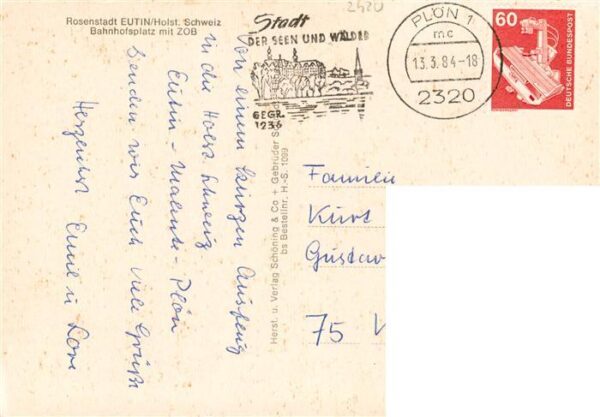 Rosenstadt EUTIN/Holst. Schweiz
Bahnhofsplatz mit ZOB
2420
Stadt
DER SEEN UND WÄLDER
GEGR.
1236
PLÖN 1
mc
13.3.84-18
2320
60
DEUTSCHE BUNDESPOST
Von einem kurzen Ausflug
in der Holst. Schweiz
Eutin - Malente - Plön
senden wir Euch viele Grüße
Herzlichst Emil u. Lore
Herst. u. Verlag Schöning & Co + Gebrüder S
bs Bestellnr. H.-S. 1099
Familie
Kurt
Gustav
75